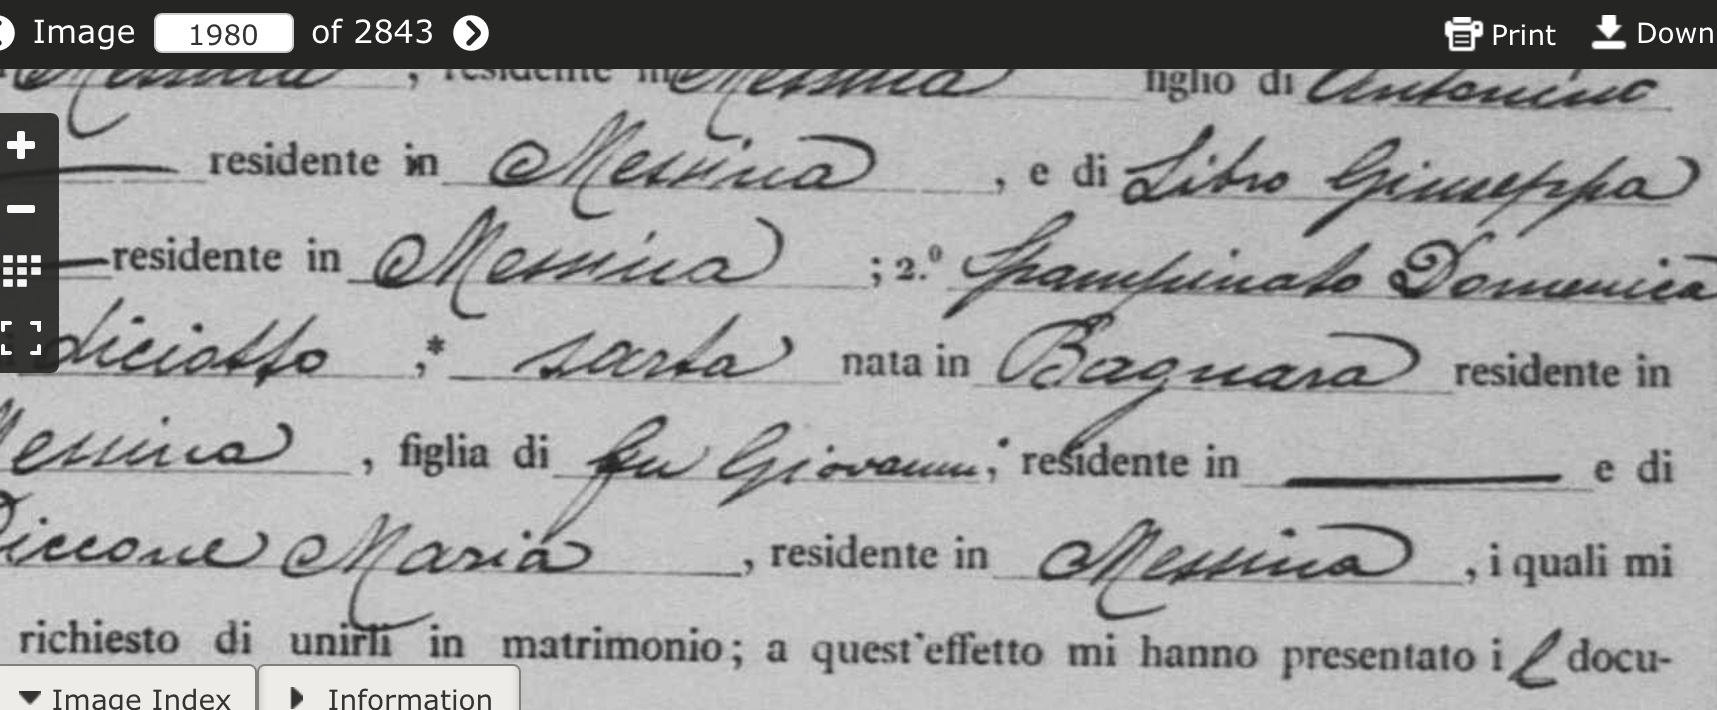 Image 1980 of 2843 Print Down
Messina, residente in Messina figlio di Antonino
residente in Messina, e di Libro Giuseppa
residente in Messina; 2.º Spampinato Domenica
diciotto,* sarta nata in Bagnara residente in
Messina, figlia di fu Giovanni, residente in e di
Ciccone Maria, residente in Messina, i quali mi
richiesto di unirli in matrimonio; a quest'effetto mi hanno presentato i docu-
Image Index Information